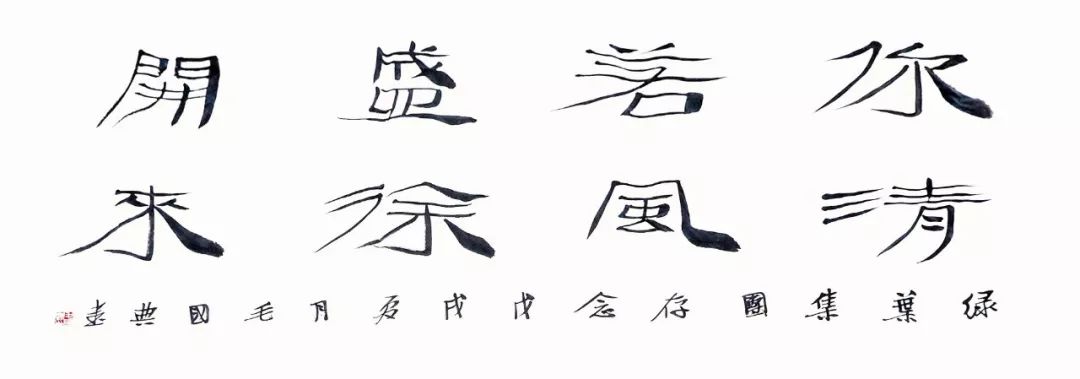 你若盛開
清風徐來
绿葉集團存念戊戌夏月毛國典書